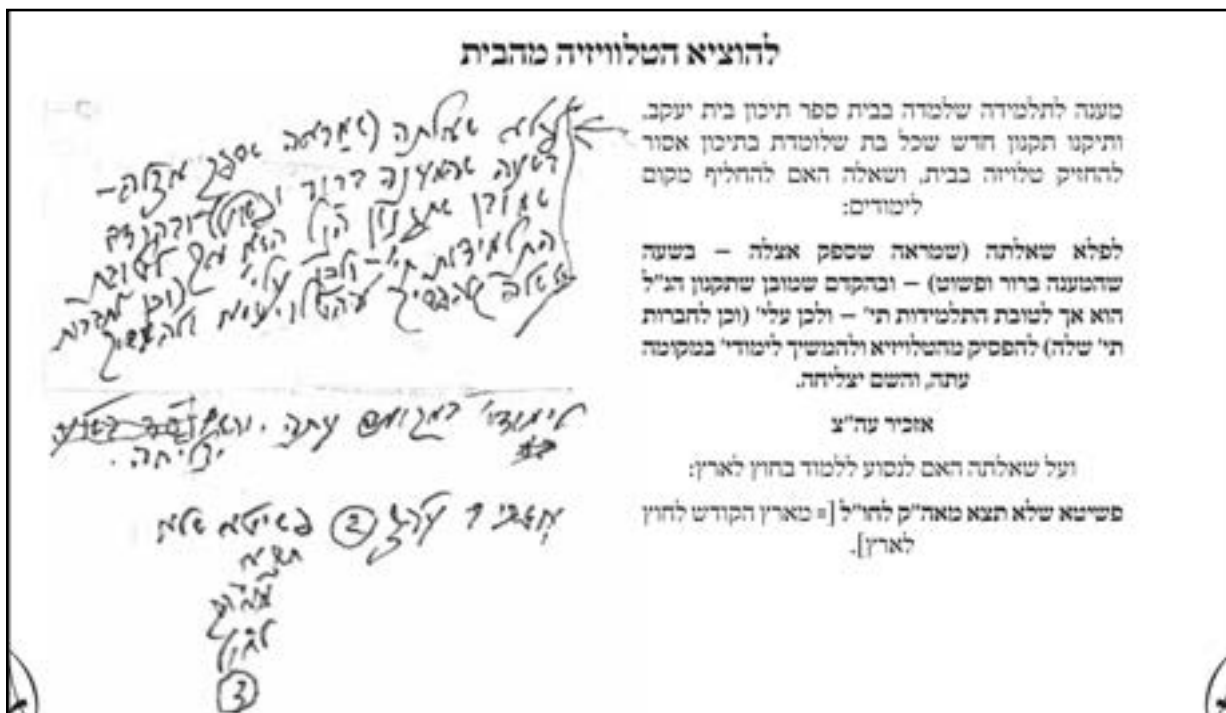 להוציא הטלוויזיה מהבית
מענה לתלמידה שלמדה בבית ספר תיכון בית יעקב,
ותיקנו תקנון חדש שכל בת שלומדת בתיכון אסור
להחזיק טלויזיה בבית, ושאלה האם להחליף מקום
לימודים:
לפלא שאלתה (שמראה שספק אצלה – בשעה
שהמענה ברור ופשוט) – ובהקדם שמובן שתקנון הנ"ל
הוא אך לטובת התלמידות תי' – ולכן עלי' (וכן לחברות
תי' שלה) להפסיק מהטלויזיא ולהמשיך לימודי' במקומה
עתה, והשם יצליחה.
אזכיר עה"צ
ועל שאלתה האם לנסוע ללמוד בחוץ לארץ:
פשיטא שלא תצא מאה"ק לחו"ל [= מארץ הקודש לחוץ
לארץ].
לפלא שאלתה (שמראה שספק אצלה –
בשעה שהמענה ברור ופשוט) ובהקדם
שמובן שתקנון הנ"ל הוא אך לטובת
התלמידות תי' – ולכן עלי' (וכן לחברות
שלה להפסיק מהטלויזיא ולהמשיך
לימודי' במקומה עתה. והשם
יצליחה.
אזכיר עה"צ 2 פשיטא שלא
תצא
מאה"ק
לחו"ל
3